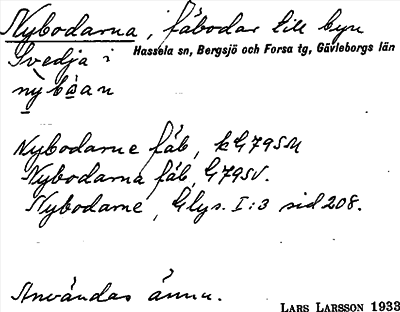 Nybodarna, fäbodar till byn
Svedja i Hassela sn, Bergsjö och Forsa tg, Gävleborgs län
nybåan
Nybodarne fäb, kG79SM
Nybodarna fäb, G79SV.
Nybodarne, Glys. I:3 sid 208.
Användas ännu.
LARS LARSSON 1933